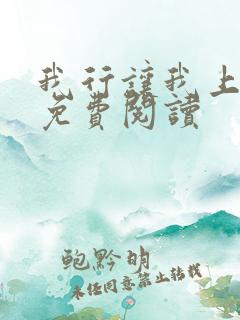 我行讓我上
免費閱讀
鲍黔明
未经同意禁止转载